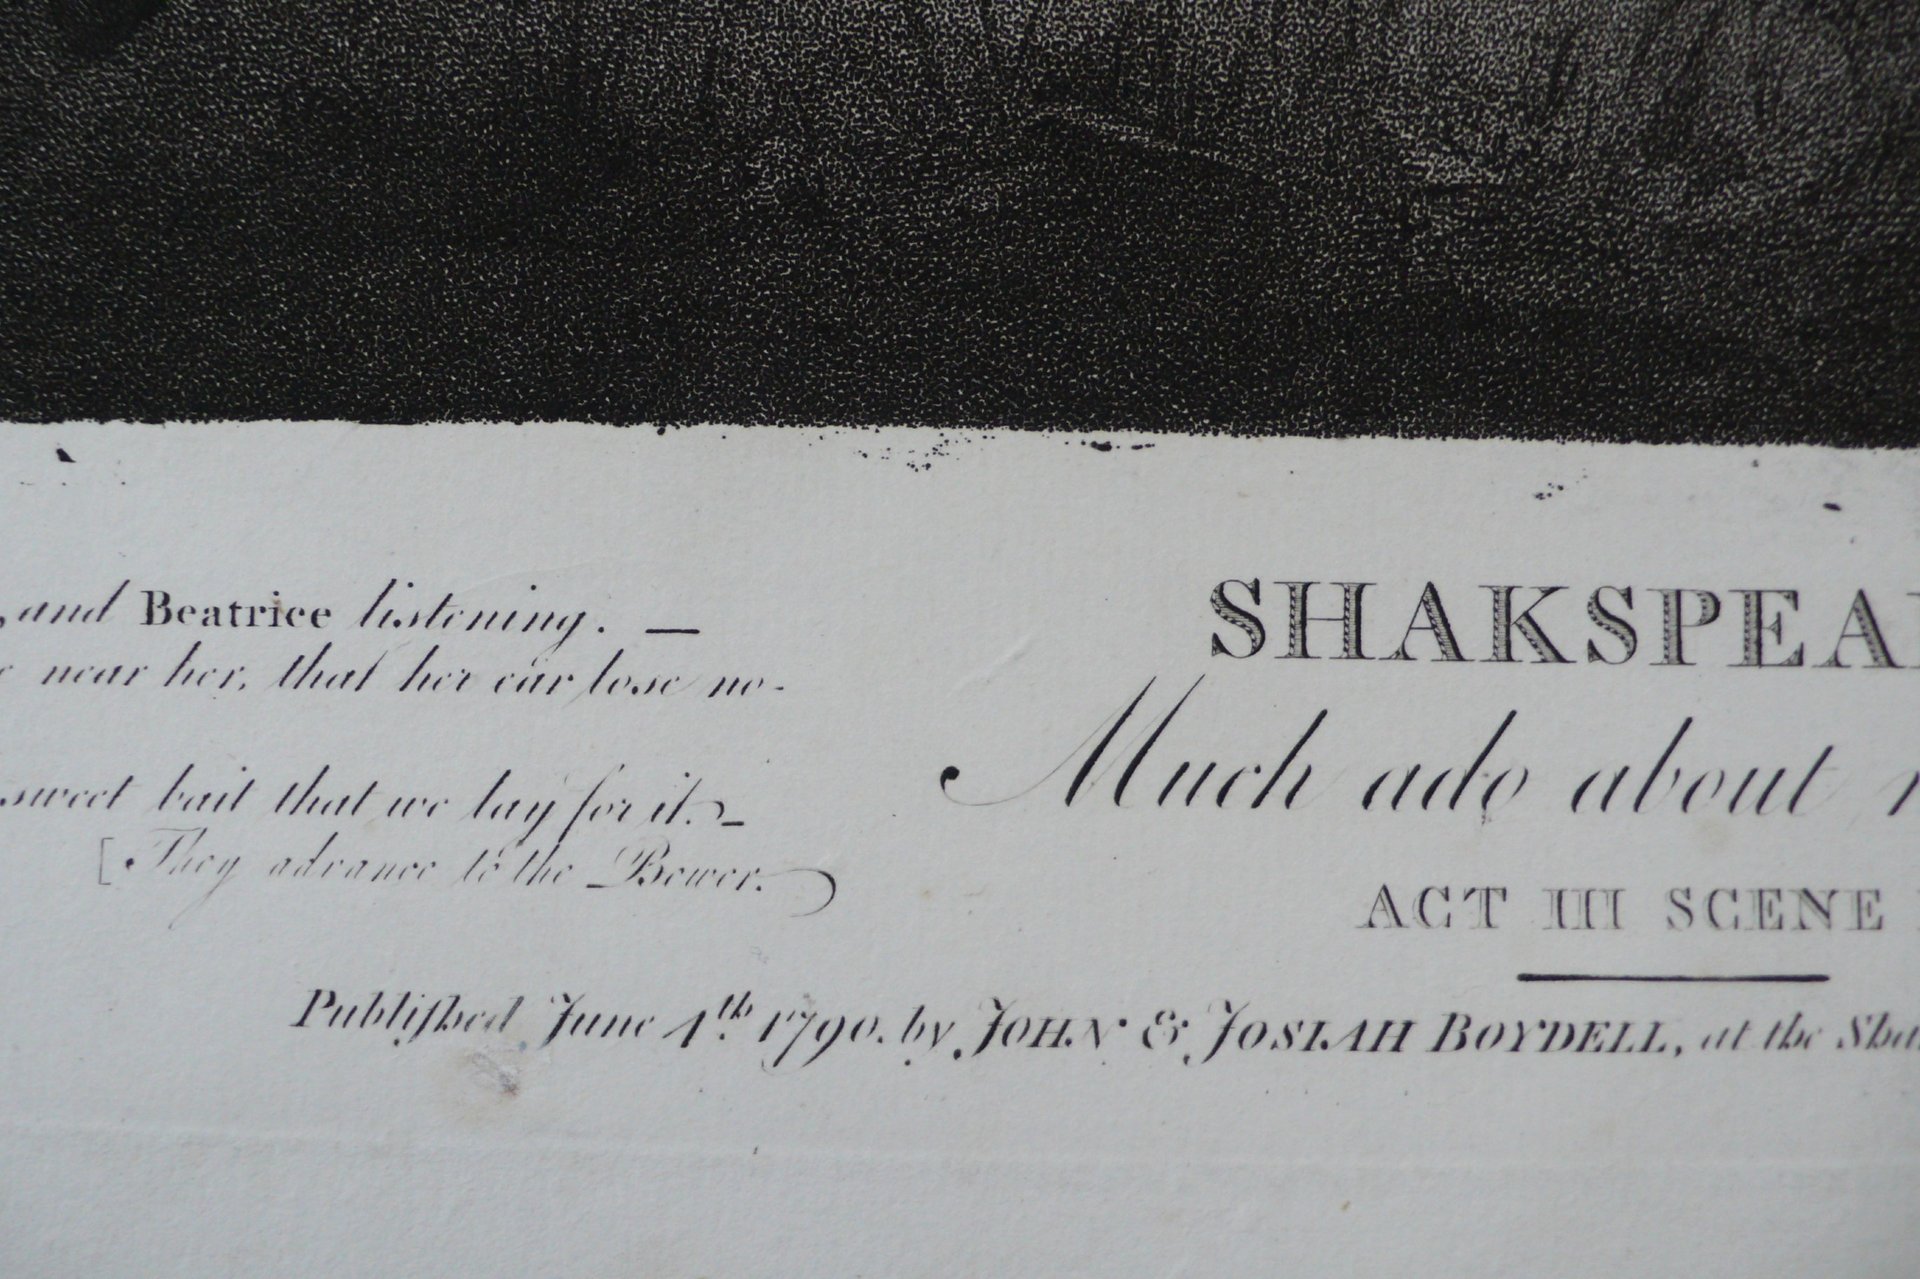 , and Beatrice listening. —
near her, that her ear lose no-
sweet bait that we lay for it. –
[They advance to the Bower.
SHAKSPEA
Much ado about
ACT III SCENE
Publiſhed June 4th 1790. by JOHN & JOSIAH BOYDELL, at the Sha